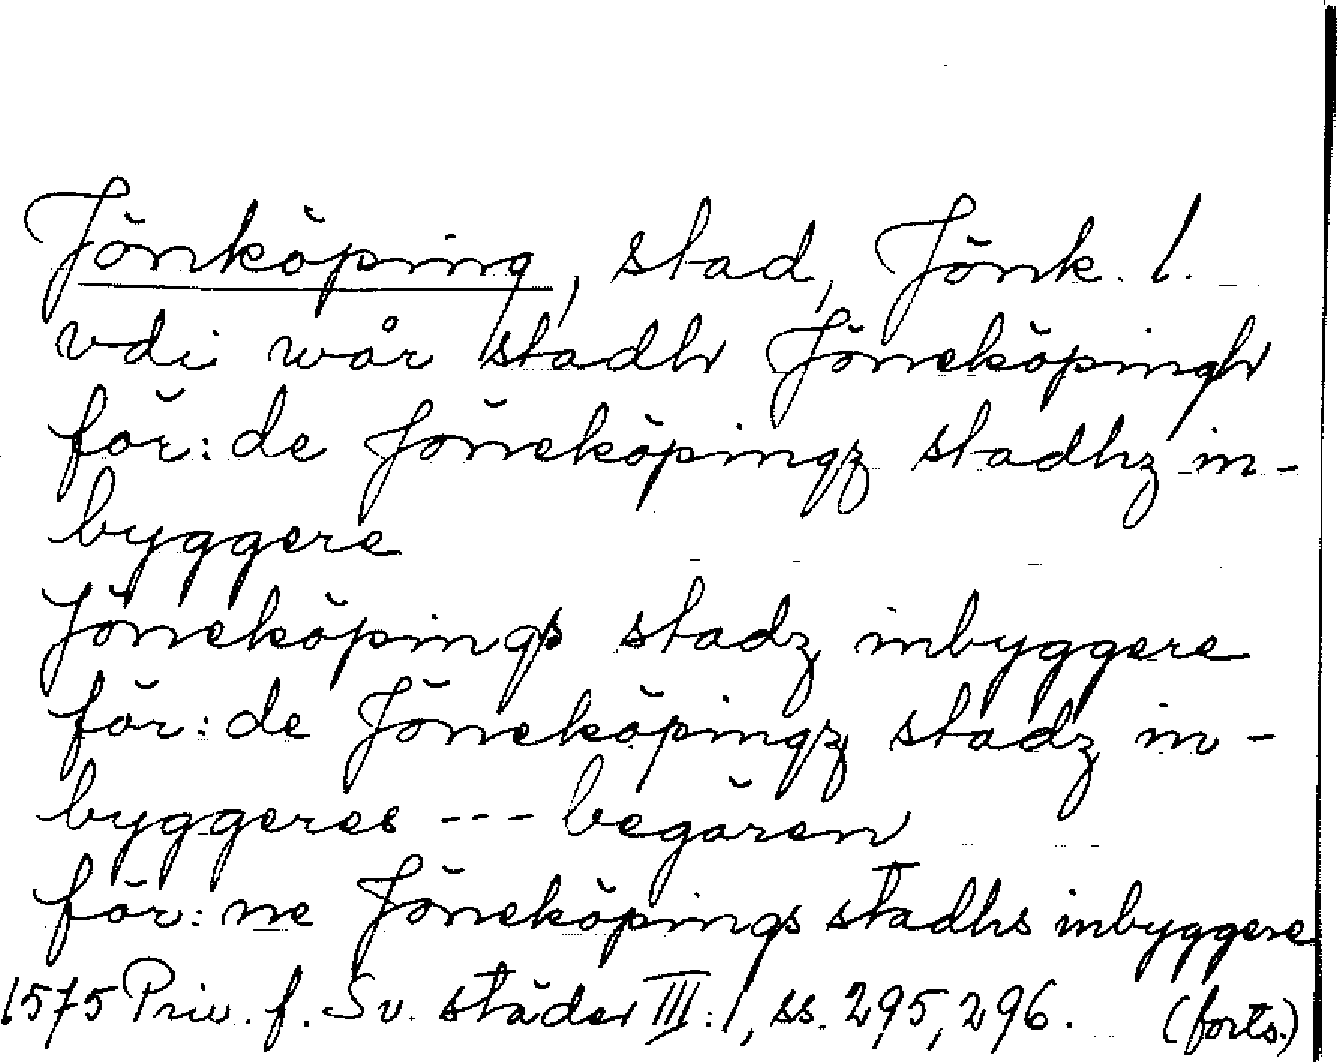 Jönköping, stad, Jönk. l.
vdi wår stadh Jöneköpingh
för:de Jöneköpingz stadhz in-
byggere
Jöneköpings stadz inbyggere
för:de Jöneköpingz stadz in-
byggeres --- begären
för:ne Jöneköpings stadhs inbyggere
1575 Priv. f. Sv. städer III:1, ss. 295, 296. (forts.)